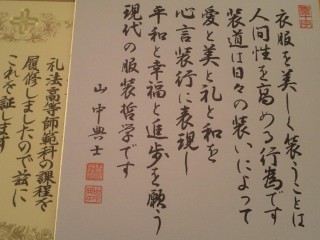 衣服を美しく装うことは
人間性を高める行為です
装道は日々の装いによって
愛と美と礼と和を
心言装行に表現し
平和と幸福と進歩を願う
現代の服装哲学です
山中典士
礼法高等師範科の課程を
履修しましたので茲に
これを証します